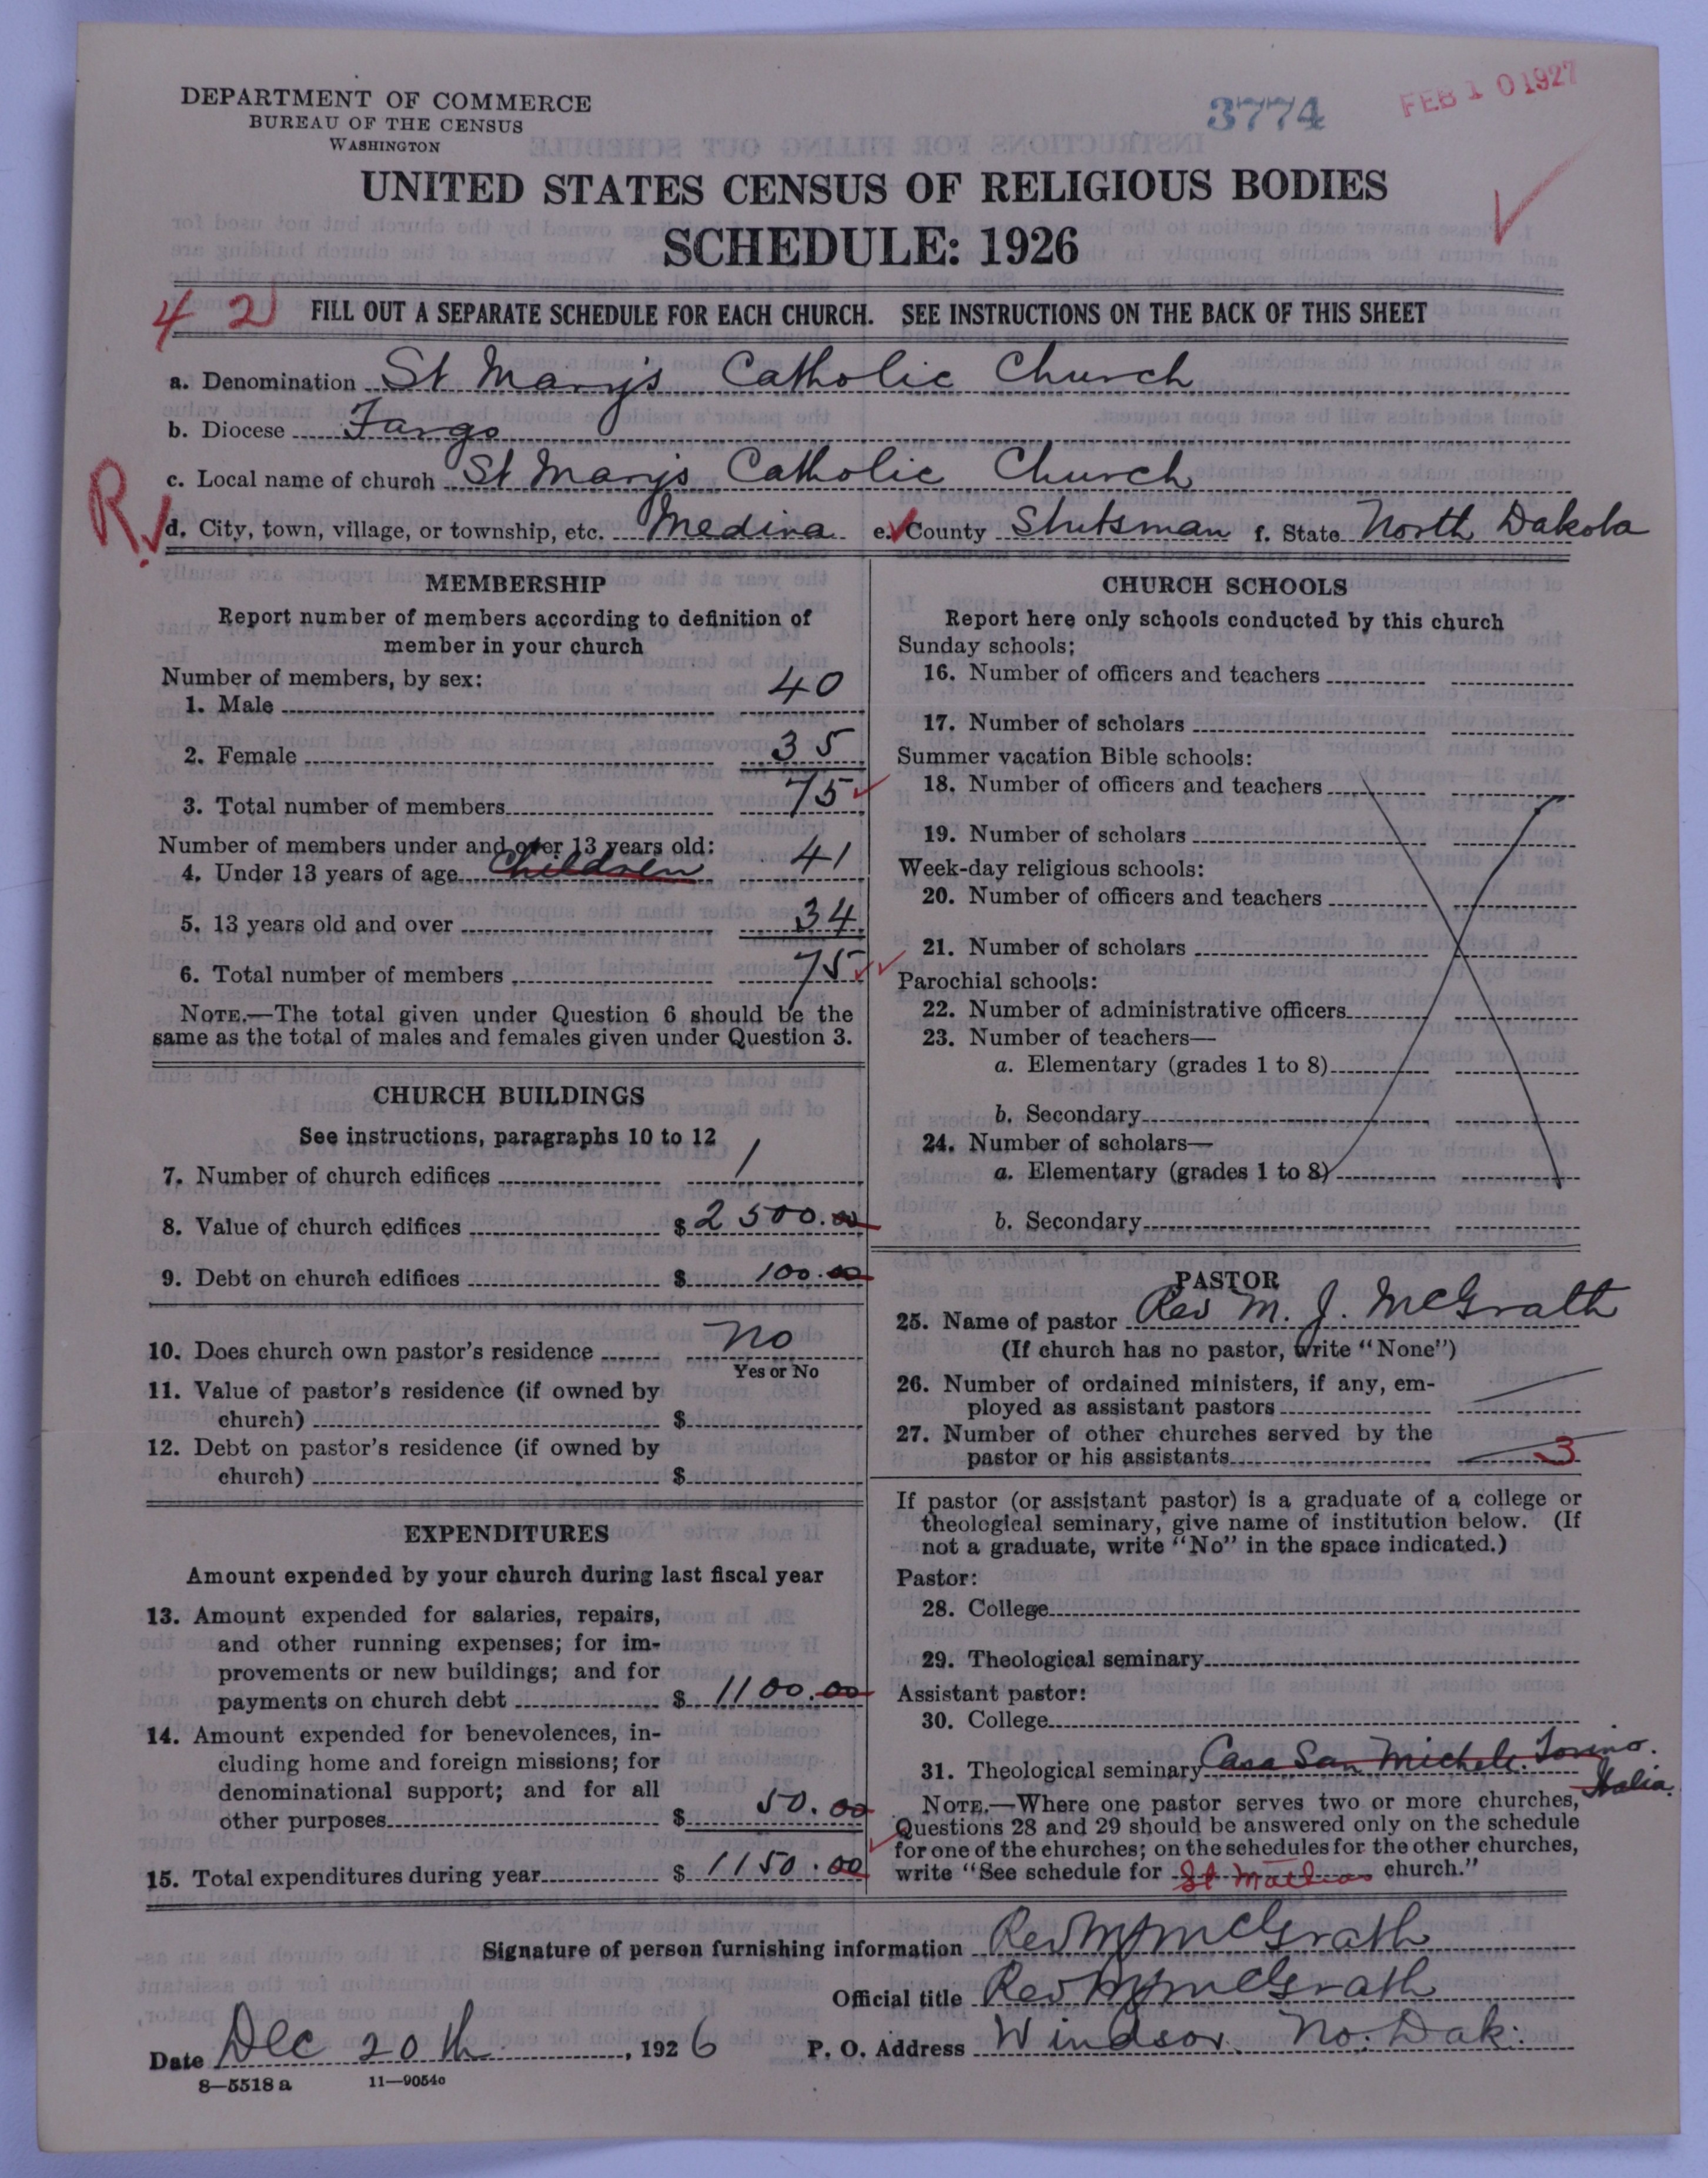 DEPARTMENT OF COMMERCE
BUREAU OF THE CENSUS
WASHINGTON
3774
FEB 10 1927
UNITED STATES CENSUS OF RELIGIOUS BODIES
SCHEDULE: 1926
4 2 FILL OUT A SEPARATE SCHEDULE FOR EACH CHURCH. SEE INSTRUCTIONS ON THE BACK OF THIS SHEET
a. Denomination St Mary's Catholic Church
b. Diocese Fargo
c. Local name of church St Mary's Catholic Church
R
d. City, town, village, or township, etc. Medina e. County Stutsman f. State North Dakota
MEMBERSHIP
Report number of members according to definition of
member in your church
Number of members, by sex:
1. Male 40
2. Female 35
3. Total number of members 75
Number of members under and over 13 years old:
4. Under 13 years of age Children 41
5. 13 years old and over 34
6. Total number of members 75
NOTE.—The total given under Question 6 should be the
same as the total of males and females given under Question 3.
CHURCH BUILDINGS
See instructions, paragraphs 10 to 12
7. Number of church edifices 1
8. Value of church edifices $ 2500.00
9. Debt on church edifices $ 100.00
10. Does church own pastor's residence No
Yes or No
11. Value of pastor's residence (if owned by
church) $
12. Debt on pastor's residence (if owned by
church) $
EXPENDITURES
Amount expended by your church during last fiscal year
13. Amount expended for salaries, repairs,
and other running expenses; for im-
provements or new buildings; and for
payments on church debt $ 1100.00
14. Amount expended for benevolences, in-
cluding home and foreign missions; for
denominational support; and for all
other purposes $ 50.00
15. Total expenditures during year $ 1150.00
CHURCH SCHOOLS
Report here only schools conducted by this church
Sunday schools:
16. Number of officers and teachers
17. Number of scholars
Summer vacation Bible schools:
18. Number of officers and teachers
19. Number of scholars
Week-day religious schools:
20. Number of officers and teachers
21. Number of scholars
Parochial schools:
22. Number of administrative officers
23. Number of teachers—
a. Elementary (grades 1 to 8)
b. Secondary
24. Number of scholars—
a. Elementary (grades 1 to 8)
b. Secondary
PASTOR
25. Name of pastor Rev M. J. McGrath
(If church has no pastor, write "None")
26. Number of ordained ministers, if any, em-
ployed as assistant pastors
27. Number of other churches served by the
pastor or his assistants 3
If pastor (or assistant pastor) is a graduate of a college or
theological seminary, give name of institution below. (If
not a graduate, write "No" in the space indicated.)
Pastor:
28. College
29. Theological seminary
Assistant pastor:
30. College
31. Theological seminary Casa San Michele. Torino.
Italia.
NOTE.—Where one pastor serves two or more churches,
Questions 28 and 29 should be answered only on the schedule
for one of the churches; on the schedules for the other churches,
write "See schedule for St Mathias church."
Signature of person furnishing information Rev M J McGrath
Official title Rev M J McGrath
Date Dec 20th, 1926 P. O. Address Windsor No. Dak.
8—5518 a 11—9054c